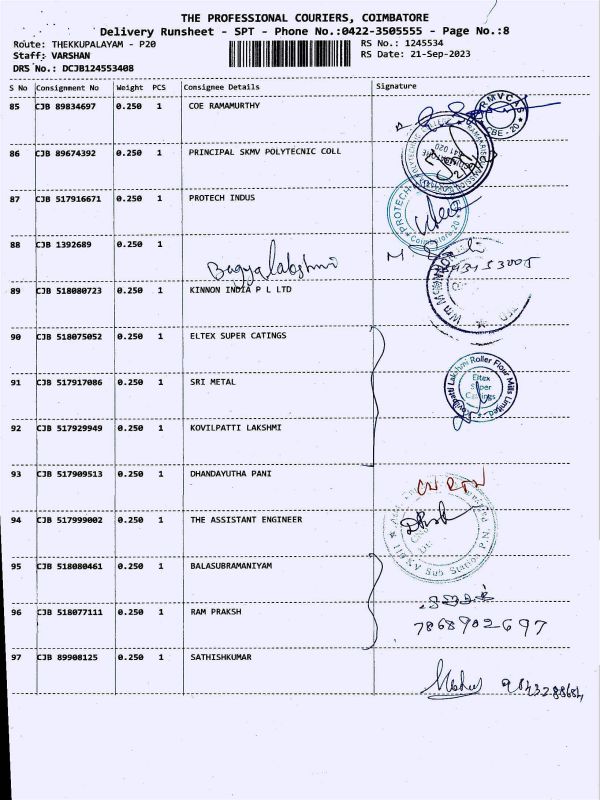 THE PROFESSIONAL COURIERS, COIMBATORE
Delivery Runsheet - SPT - Phone No.:0422-3505555 - Page No.:8
Route: THEKKUPALAYAM - P20 RS No.: 1245534
Staff: VARSHAN RS Date: 21-Sep-2023
DRS No.: DCJB124553408
S No Consignment No Weight PCS Consignee Details Signature
85 CJB 89834697 0.250 1 COE RAMAMURTHY
86 CJB 89674392 0.250 1 PRINCIPAL SKMV POLYTECNIC COLL
87 CJB 517916671 0.250 1 PROTECH INDUS
88 CJB 1392689 0.250 1
Bagyalakshmi
89 CJB 518080723 0.250 1 KINNON INDIA P L LTD
90 CJB 518075052 0.250 1 ELTEX SUPER CATINGS
91 CJB 517917086 0.250 1 SRI METAL
Kovilpatti Lakshmi Roller Flour Mills Limited
Eltex
Super
Castings
92 CJB 517929949 0.250 1 KOVILPATTI LAKSHMI
93 CJB 517909513 0.250 1 DHANDAYUTHA PANI
94 CJB 517999002 0.250 1 THE ASSISTANT ENGINEER
95 CJB 518080461 0.250 1 BALASUBRAMANIYAM
96 CJB 518077111 0.250 1 RAM PRAKSH
7868902697
97 CJB 89908125 0.250 1 SATHISHKUMAR
9843288684